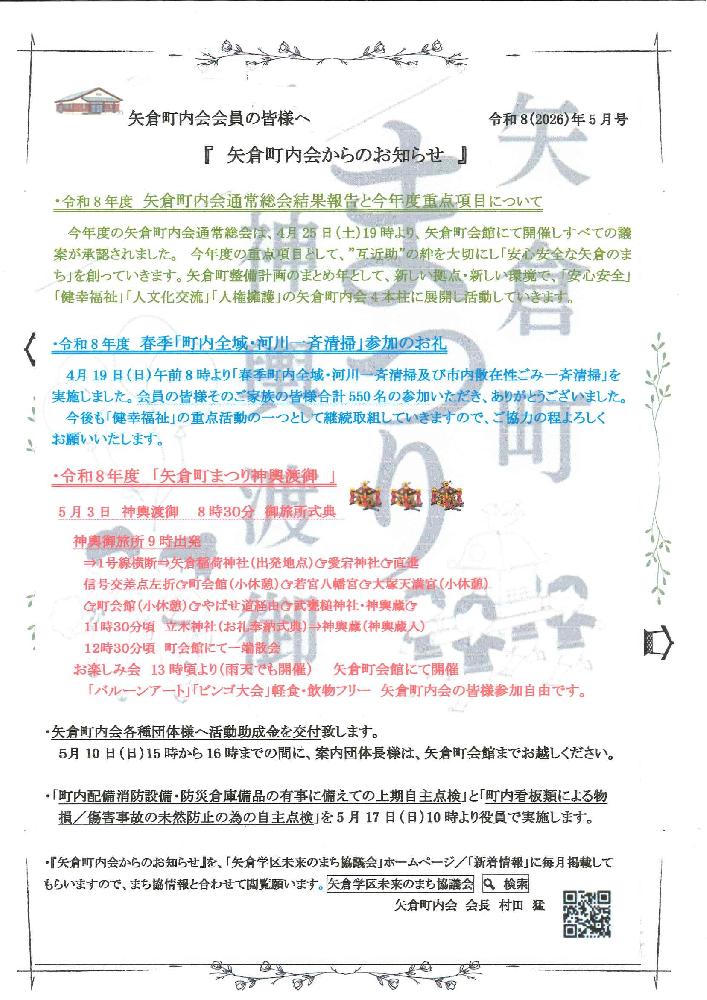 矢倉町内会会員の皆様へ 令和8(2026)年5月号
『 矢倉町内会からのお知らせ 』
・令和8年度 矢倉町内会通常総会結果報告と今年度重点項目について
今年度の矢倉町内会通常総会は、4月25日(土)19時より、矢倉町会館にて開催しすべての議
案が承認されました。 今年度の重点項目として、"互近助"の絆を大切にし「安心安全な矢倉のま
ち」を創っていきます。矢倉町整備計画のまとめ年として、新しい拠点・新しい環境で、「安心安全」
「健幸福祉」「人文化交流」「人権擁護」の矢倉町内会4本柱に展開し活動していきます。
・令和8年度 春季「町内全域・河川一斉清掃」参加のお礼
4月19日(日)午前8時より「春季町内全域・河川一斉清掃及び市内散在性ごみ一斉清掃」を
実施しました。会員の皆様そのご家族の皆様合計550名の参加いただき、ありがとうございました。
今後も「健幸福祉」の重点活動の一つとして継続取組していきますので、ご協力の程よろしく
お願いいたします。
・令和8年度 「矢倉町まつり神輿渡御 」
5月3日 神輿渡御 8時30分 御旅所式典
神輿御旅所9時出発
⇒1号線横断⇒矢倉稲荷神社(出発地点)☞愛宕神社☞直進
信号交差点左折☞町会館(小休憩)☞若宮八幡宮☞大塚天満宮(小休憩)
☞町会館(小休憩)☞やばせ道経由☞武甕槌神社・神輿蔵☞
11時30分頃 立木神社(お礼奉納式典)→神輿蔵(神輿蔵入)
12時30分頃 町会館にて一端散会
お楽しみ会 13時頃より(雨天でも開催) 矢倉町会館にて開催
「バルーンアート」「ビンゴ大会」軽食・飲物フリー 矢倉町内会の皆様参加自由です。
・矢倉町内会各種団体様へ活動助成金を交付致します。
5月10日(日)15時から16時までの間に、案内団体長様は、矢倉町会館までお越しください。
・「町内配備消防設備・防災倉庫備品の有事に備えての上期自主点検」と「町内看板類による物
損/傷害事故の未然防止の為の自主点検」を5月17日(日)10時より役員で実施します。
・『矢倉町内会からのお知らせ』を、「矢倉学区未来のまち協議会」ホームページ/「新着情報」に毎月掲載して
もらいますので、まち協情報と合わせて閲覧願います。矢倉学区未来のまち協議会 検索
矢倉町内会 会長 村田 猛
矢倉町
まつり
神輿渡御